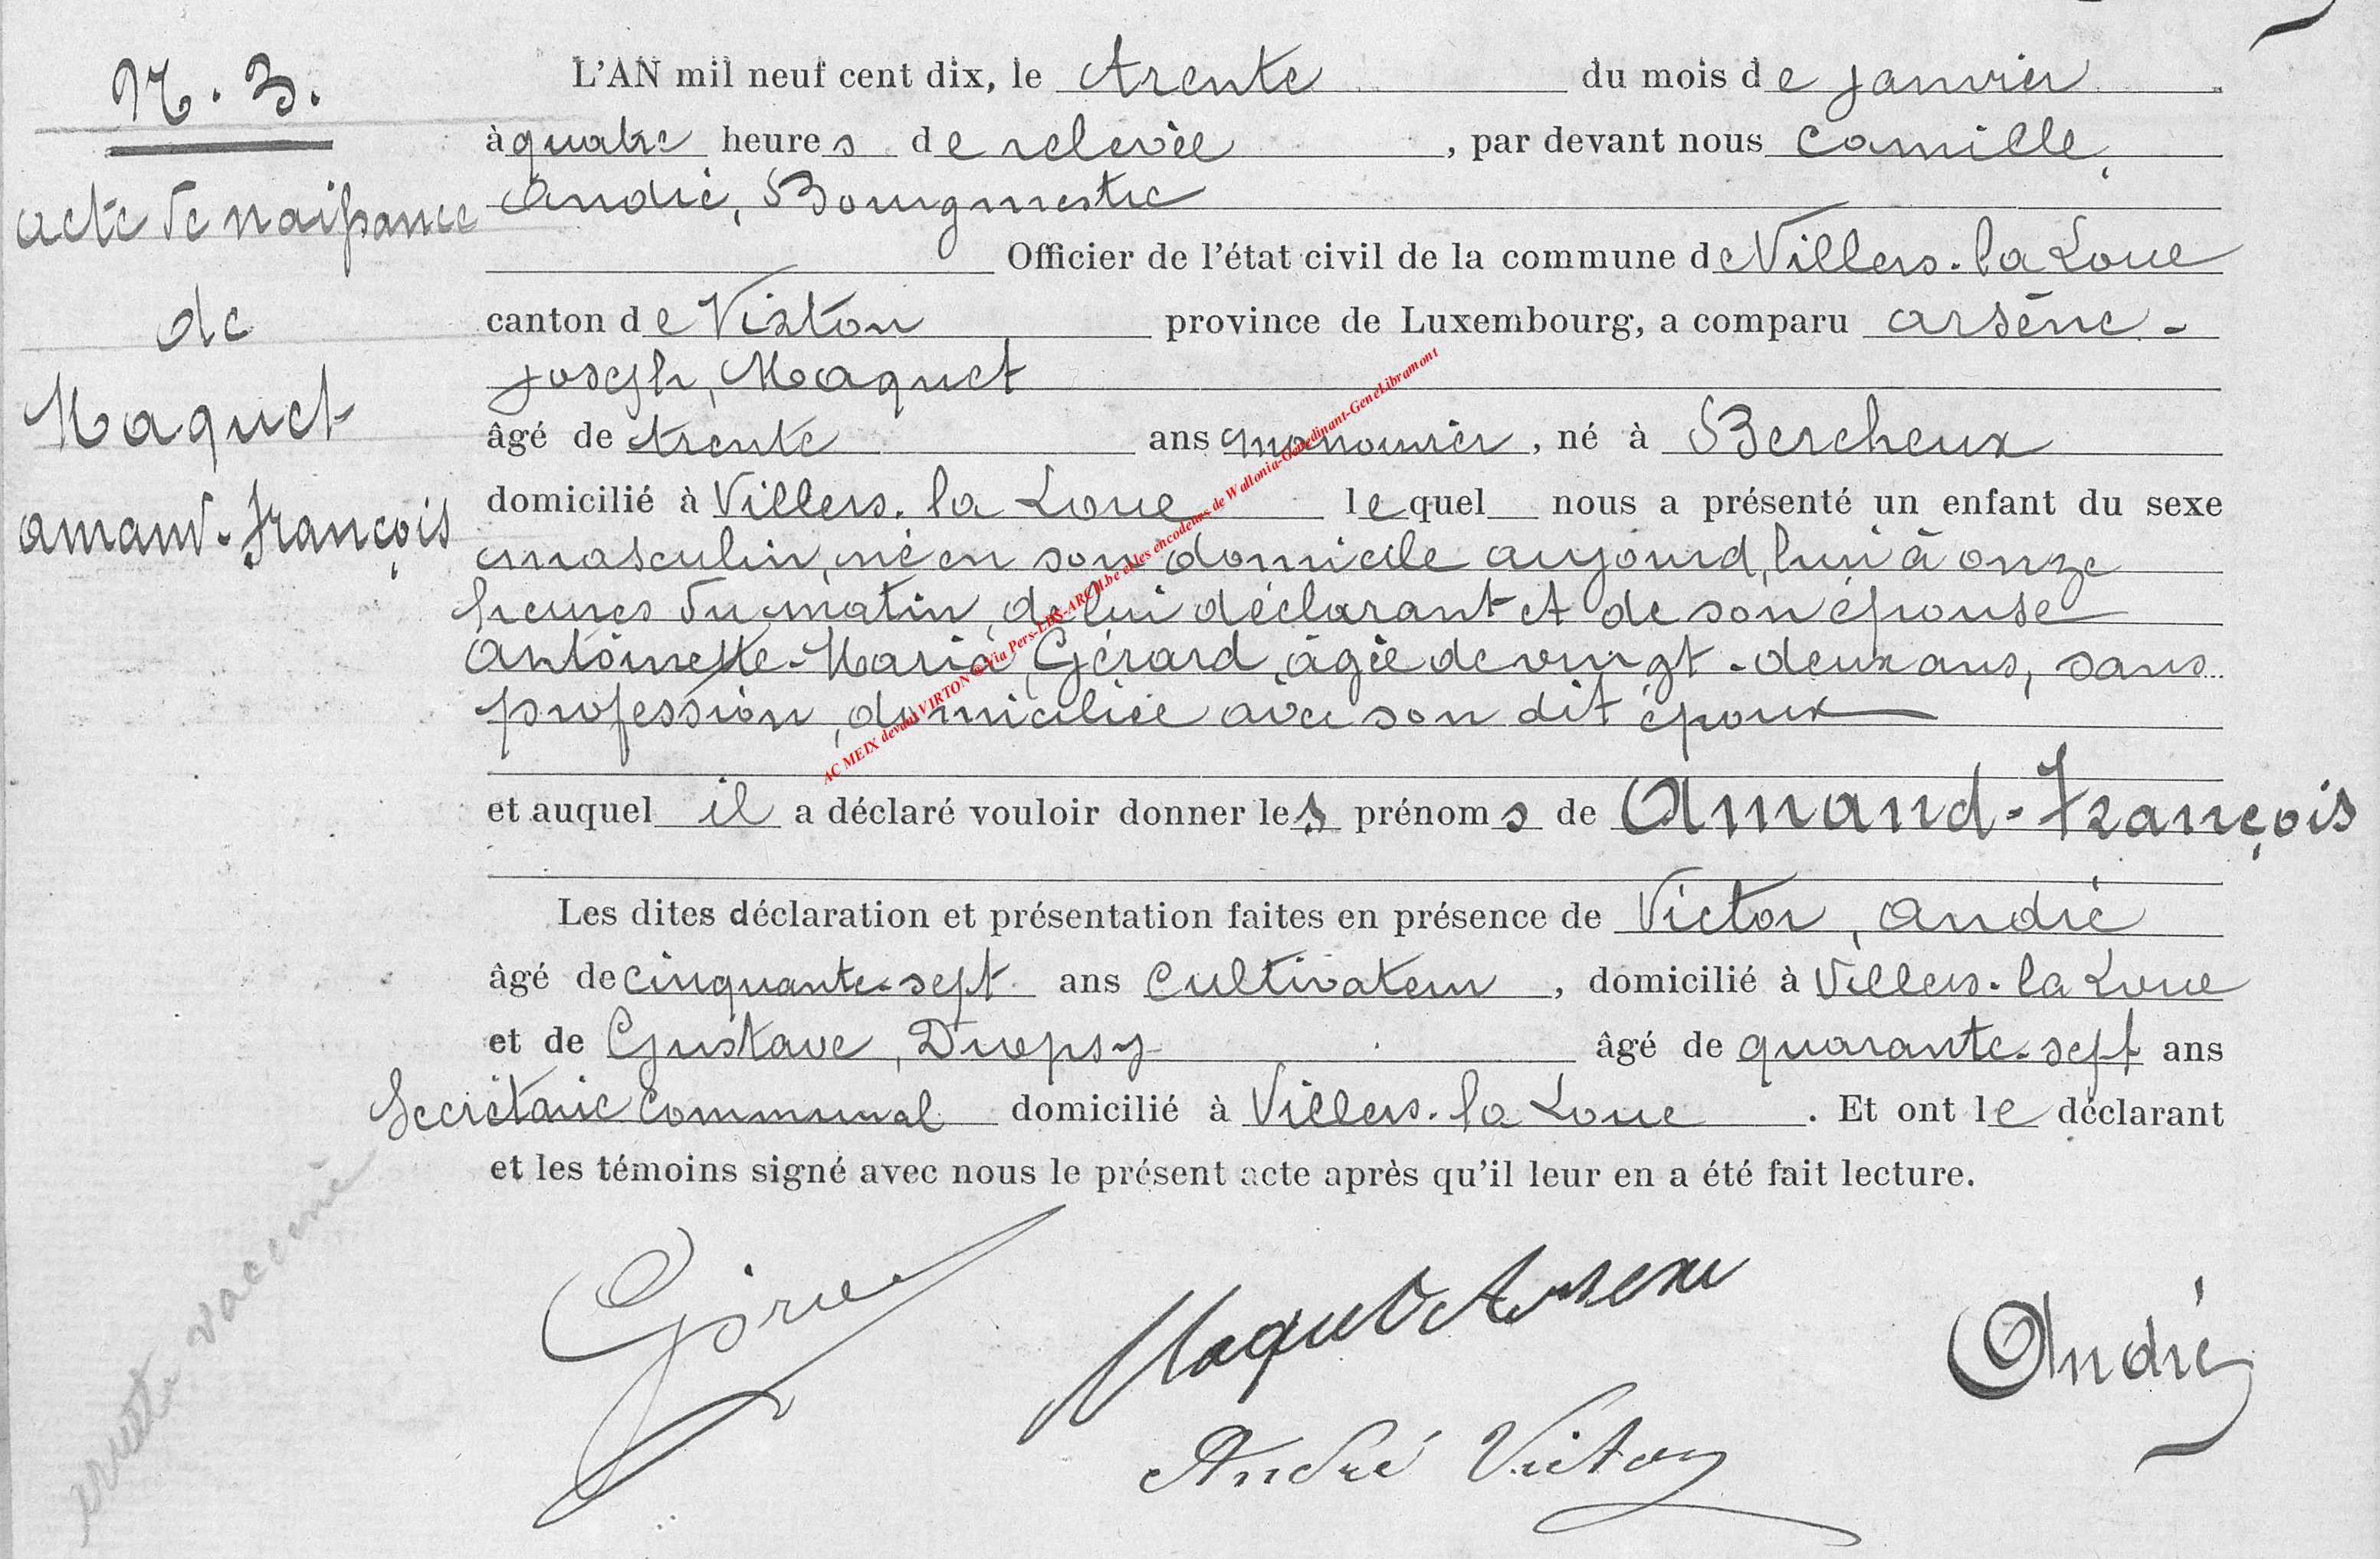 N. 3.
acte de naissance
de
Maquet
amand-françois
L'AN mil neuf cent dix, le trente du mois de janvier
à quatre heures de relevée, par devant nous Camille,
André, Bourgmestre
Officier de l'état civil de la commune de Villers-la Loue
canton de Virton province de Luxembourg, a comparu Arsène-
Joseph, Maquet
âgé de trente ans manouvrier, né à Bercheux
domicilié à Villers-la Loue lequel nous a présenté un enfant du sexe
masculin, né en son domicile aujourd'hui à onze
heures du matin, de lui déclarant et de son épouse
Antoinette-Maria, Gérard, âgée de vingt-deux ans, sans
profession, domiciliée avec son dit époux
et auquel il a déclaré vouloir donner les prénoms de Amand-François
Les dites déclaration et présentation faites en présence de Victor, André
âgé de cinquante-sept ans cultivateur, domicilié à Villers-la Loue
et de Gustave, Dropsy âgé de quarante-sept ans
Secrétaire communal domicilié à Villers-la Loue. Et ont le déclarant
et les témoins signé avec nous le présent acte après qu'il leur en a été fait lecture.
Maquet Arsene
André
André Victor
vacciné
AC MEIX devant VIRTON © Via Pers-LUX-ARCH.be et les encodeurs de Wallonia-Genedinant-GeneLibramont